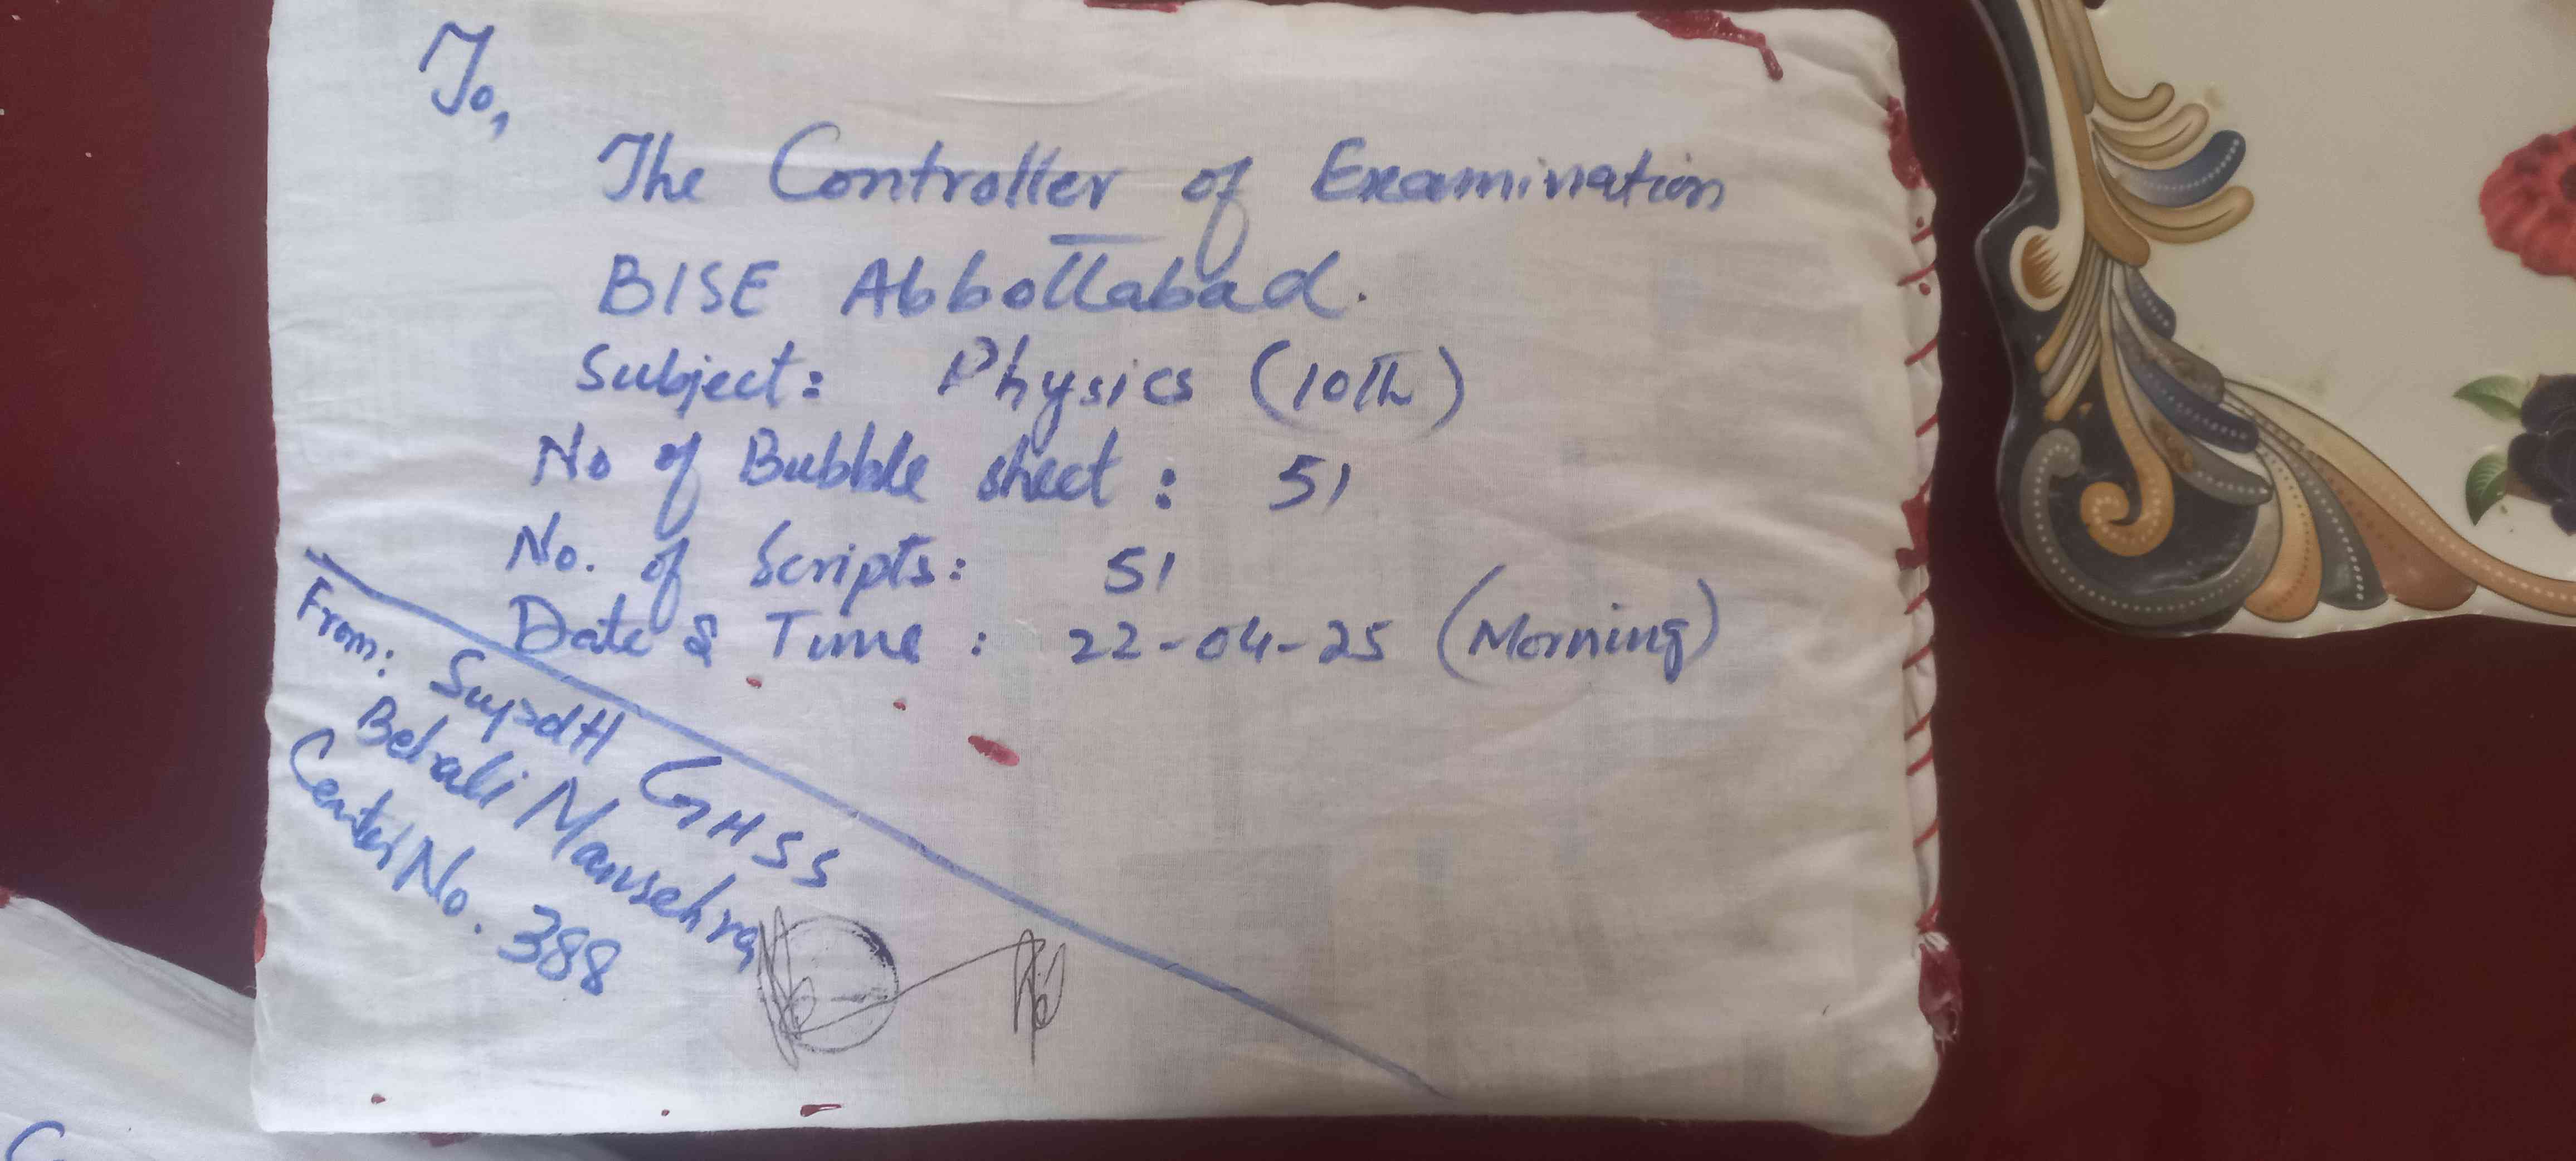 To,
The Controller of Examination
BISE Abbottabad.
Subject: Physics (10th)
No of Bubble sheet : 51
No. of Scripts: 51
Date & Time : 22-04-25 (Morning)
From: Supdtt GHSS
Behali Mansehra
Center No. 388